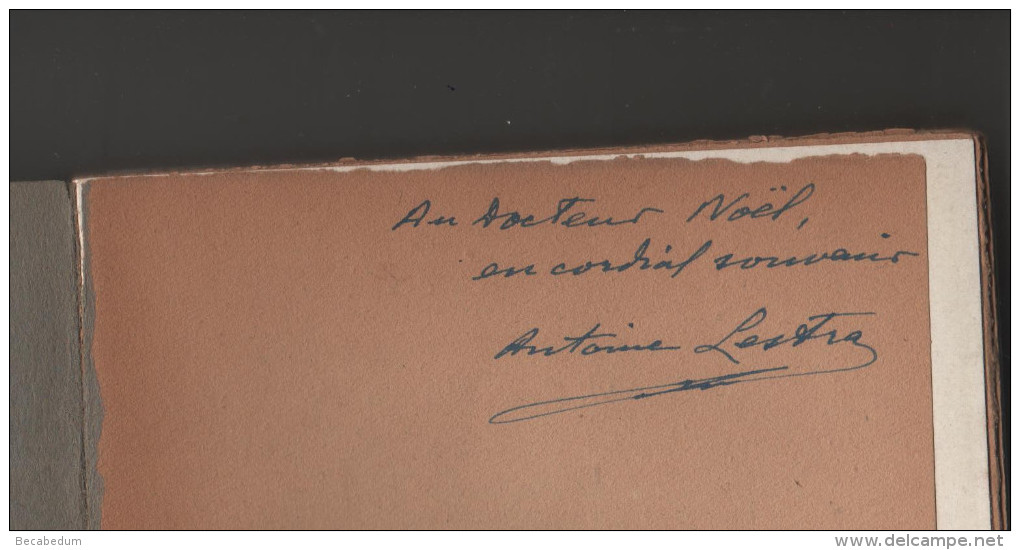 Au Docteur Noël,
en cordial souvenir
Antoine Lestra
Becabedum
www.delcampe.net